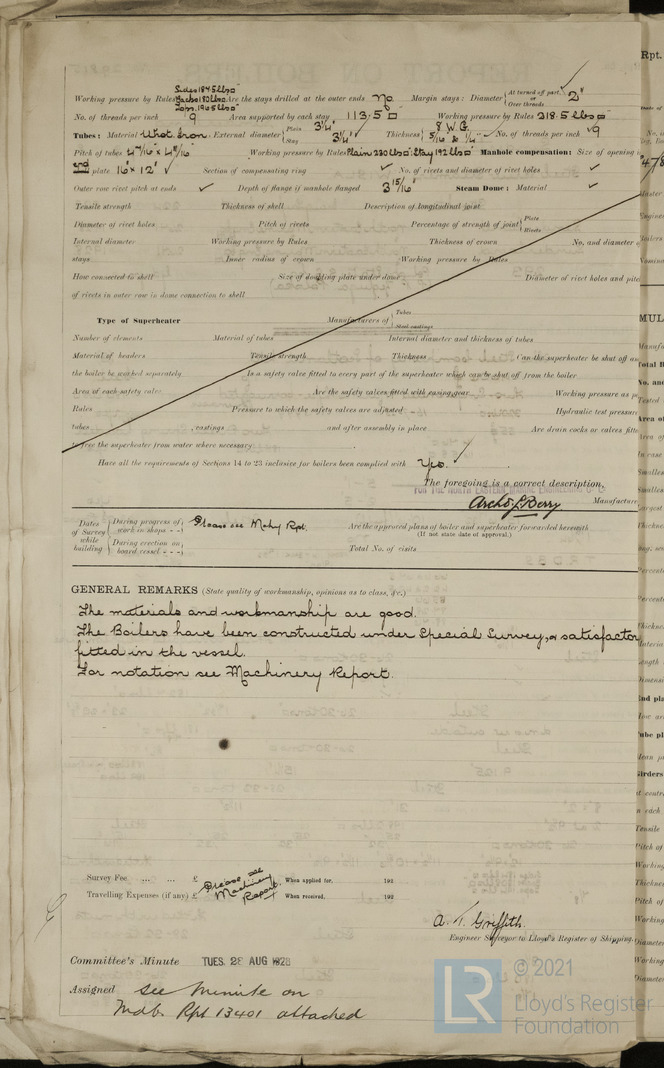 Sides 184.5 lbs□
Working pressure by Rules Backs 180 lbs□ Are the stays drilled at the outer ends No Margin stays: Diameter { At turned off part, or Over threads 2"
No. of threads per inch 9 Area supported by each stay 113.5 □ Working pressure by Rules 218.5 lbs□
Tubes: Material Wrot Iron. External diameter { Plain 3¼" Stay 3¼" Thickness { 8 W.G. 5/16 & ¼" No. of threads per inch 9
Pitch of tubes Working pressure by Rules Plain 230 lbs□ Stay 192 lbs□ Manhole compensation: Size of opening in
end plate 16" x 12" Section of compensating ring No. of rivets and diameter of rivet holes
Outer row rivet pitch at ends Depth of flange if manhole flanged 3 15/16" Steam Dome: Material
Tensile strength Thickness of shell Description of longitudinal joint
Diameter of rivet holes Pitch of rivets Percentage of strength of joint { Plate Rivets
Internal diameter Working pressure by Rules Thickness of crown No. and diameter o
stays Inner radius of crown Working pressure by Rules
How connected to shell Size of doubling plate under dome Diameter of rivet holes and pitc
of rivets in outer row in dome connection to shell
Type of Superheater Manufacturers of { Tubes Steel castings
Number of elements Material of tubes Internal diameter and thickness of tubes
Material of headers Tensile strength Thickness Can the superheater be shut off an
the boiler be worked separately Is a safety valve fitted to every part of the superheater which can be shut off from the boiler
Area of each safety valve Are the safety valves fitted with easing gear Working pressure as p
Rules Pressure to which the safety valves are adjusted Hydraulic test pressure
tubes , castings and after assembly in place Are drain cocks or valves fitte
to free the superheater from water where necessary
Have all the requirements of Sections 14 to 23 inclusive for boilers been complied with Yes.
The foregoing is a correct description,
FOR THE NORTH EASTERN MARINE ENGINEERING Co
Archd L Berry Manufacture
Dates of Survey while building { During progress of work in shops - - } Please see Mchy Rpt. Are the approved plans of boiler and superheater forwarded herewith
(If not state date of approval.)
{ During erection on board vessel - - - } Total No. of visits
GENERAL REMARKS (State quality of workmanship, opinions as to class, &c.)
The materials and workmanship are good.
The Boilers have been constructed under Special Survey, & satisfactor
fitted in the vessel.
For notation see Machinery Report.
Survey Fee ... ... £ Please see When applied for, 192
Machinery
Travelling Expenses (if any) £ Report. When received, 192
A. T. Griffith.
Engineer Surveyor to Lloyd's Register of Shipping.
Committee's Minute TUES. 28 AUG 1928
Assigned see minute on
Mdb. Rpt 13401 attached
© 2021
Lloyd's Register
Foundation
LR
Rpt.
MUL